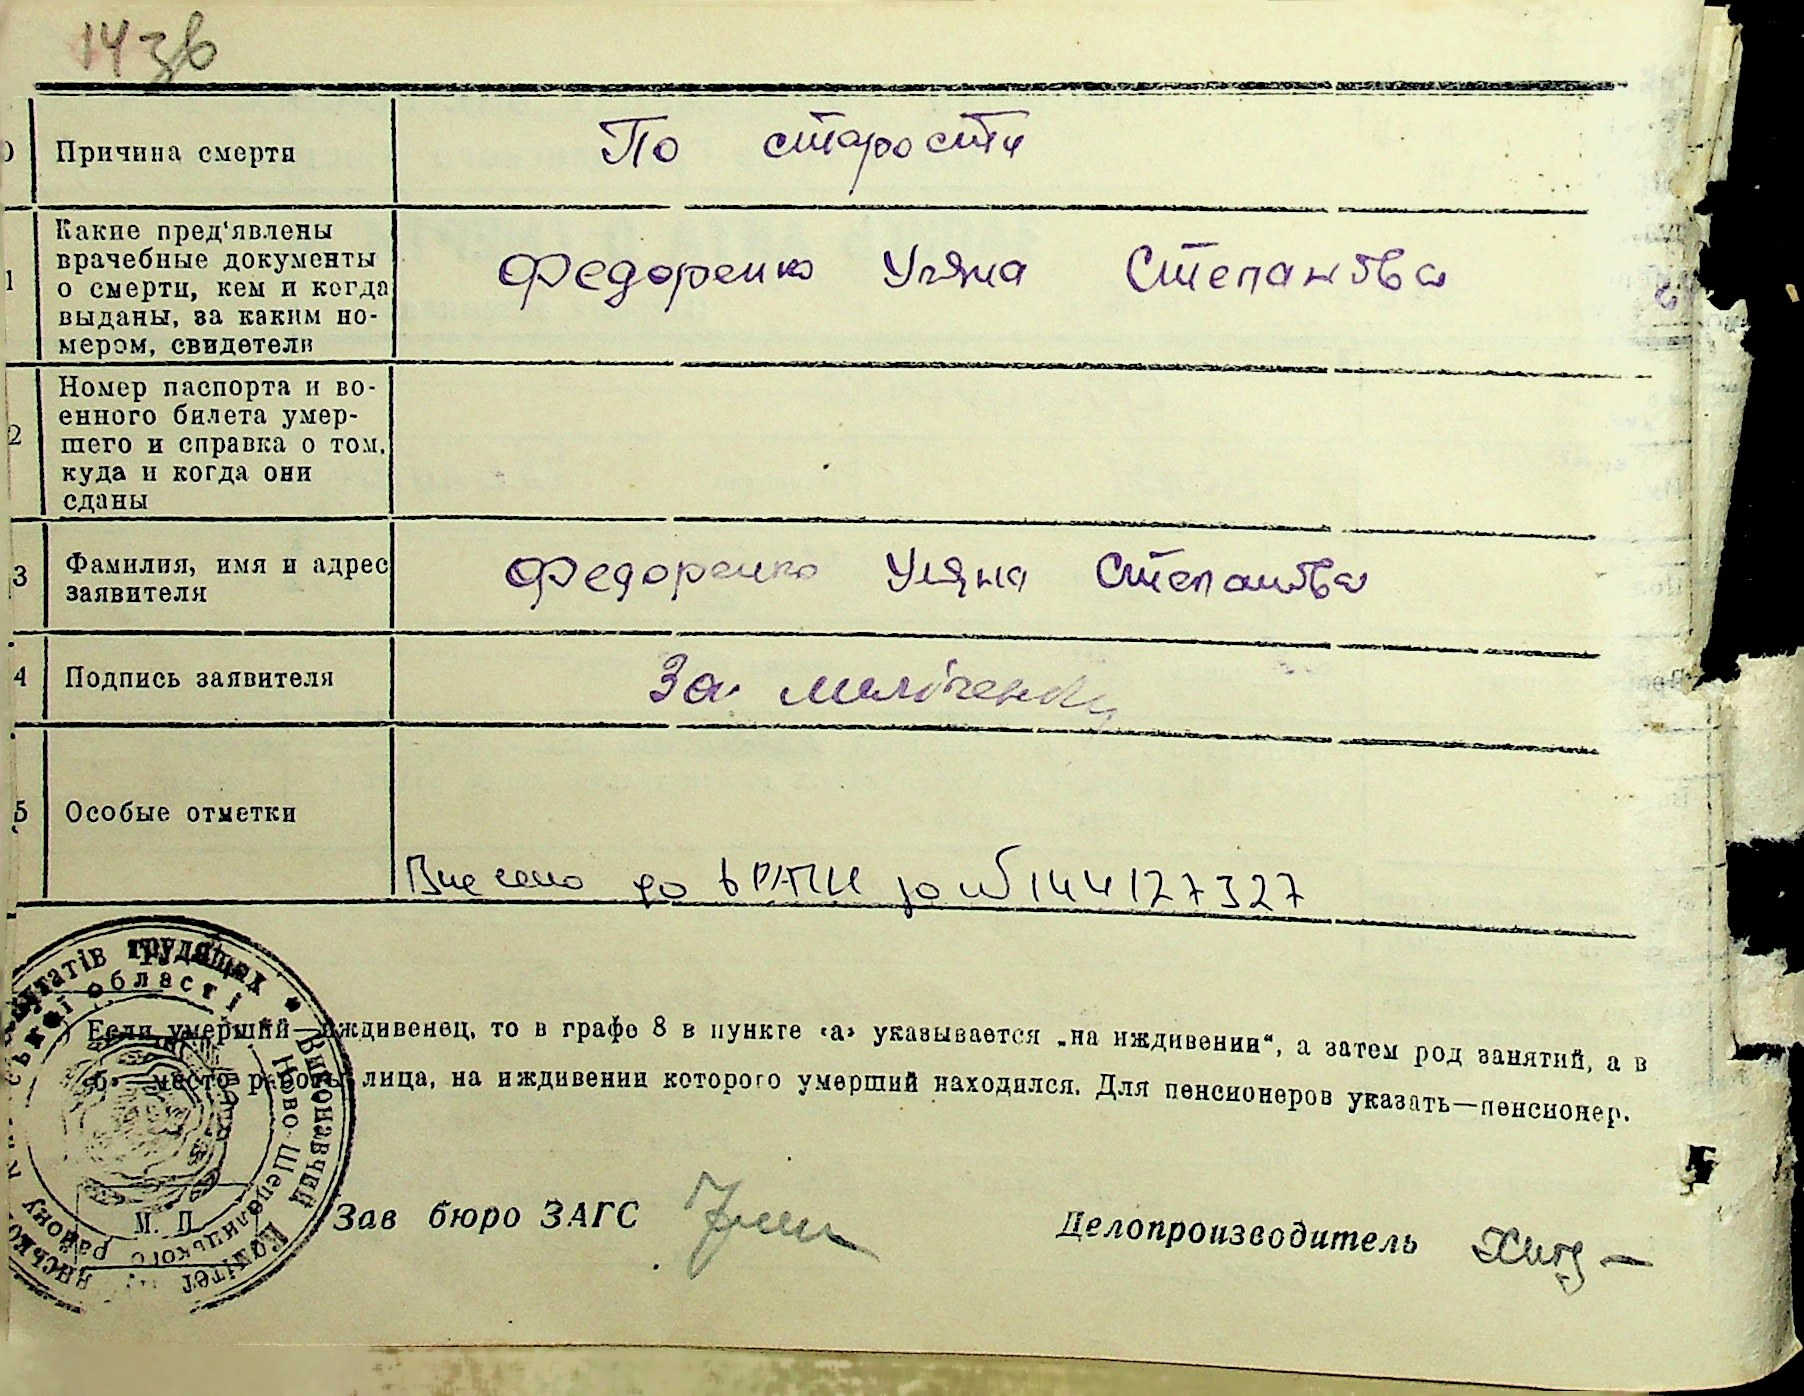 14 зв
Причина смерти
По старости
1 Какие пред'явлены
врачебные документы
о смерти, кем и когда
выданы, за каким но-
мером, свидетели
Федоренко Уляна Степановва
2 Номер паспорта и во-
енного билета умер-
шего и справка о том,
куда и когда они
сданы
3 Фамилия, имя и адрес
заявителя
Федоренко Уляна Степановва
4 Подпись заявителя
За
5 Особые отметки
Внесено до ДРАЦС за № 144127327
) Если умерший иждивенец, то в графе 8 в пункте «а» указывается „на иждивении“, а затем род занятий, а в
«б» место работы лица, на иждивении которого умерший находился. Для пенсионеров указать—пенсионер.
Виконавчий Комітет
Ново-Шепелицького району
області
трудящих
М. П.
Зав бюро ЗАГС
Делопроизводитель